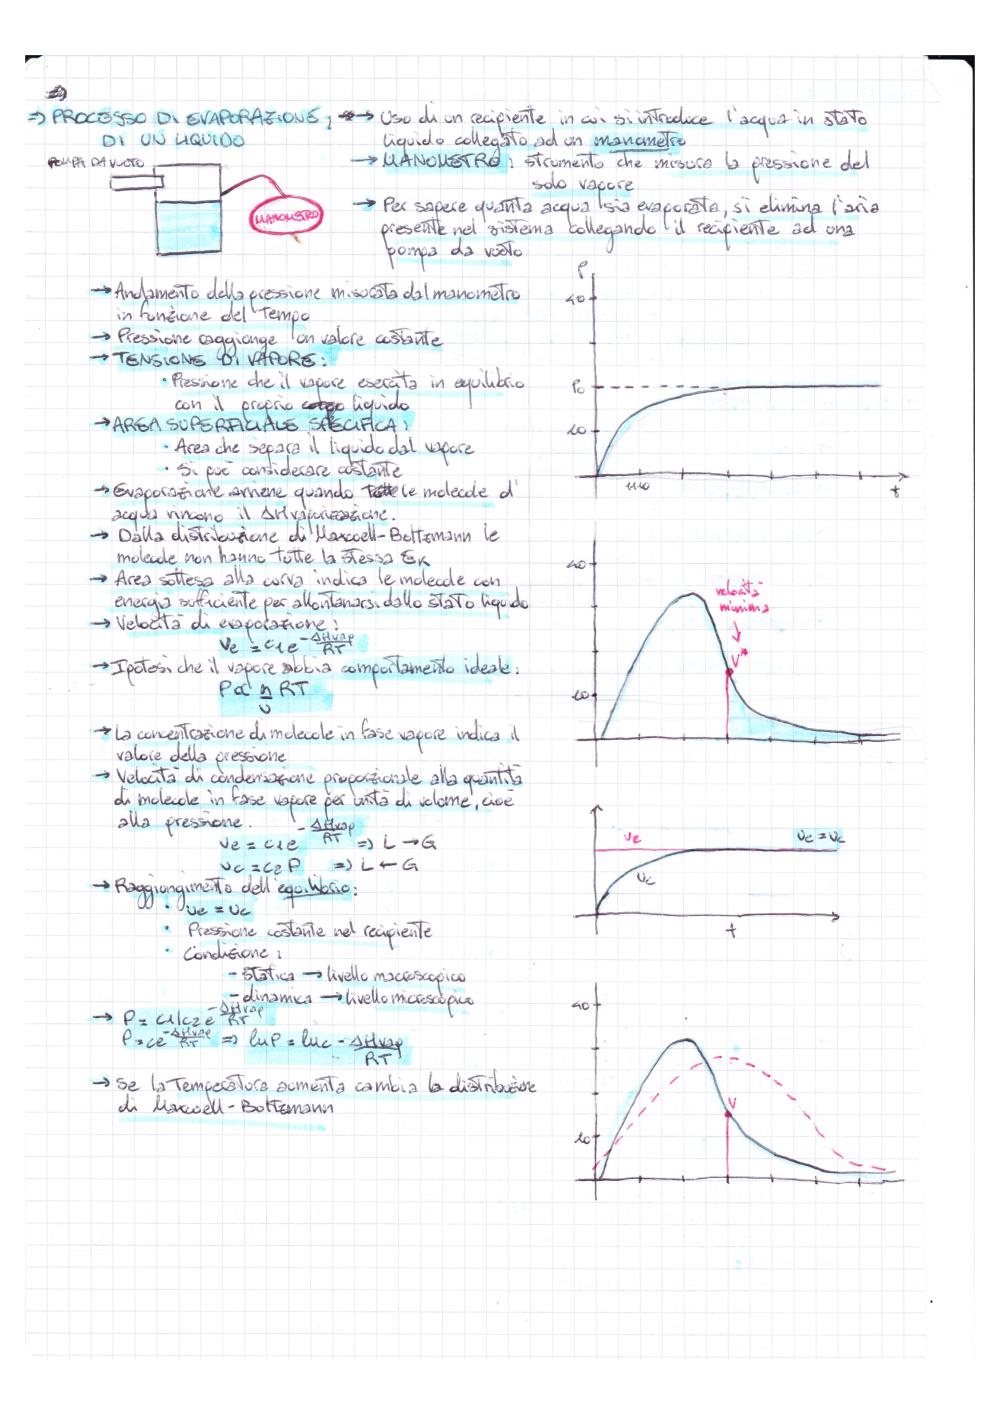 ⇒ PROCESSO DI EVAPORAZIONE: → Uso di un recipiente in cui si introduce l'acqua in stato
DI UN LIQUIDO liquido collegato ad un manometro
POMPA DA VUOTO → MANOMETRO: strumento che misura la pressione del
solo vapore
MANOMETRO
→ Per sapere quanta acqua sia evaporata, si elimina l'aria
presente nel sistema collegando il recipiente ad una
pompa da vuoto
→ Andamento della pressione misurata dal manometro
in funzione del tempo
→ Pressione raggiunge un valore costante
→ TENSIONE DI VAPORE:
• Pressione che il vapore esercita in equilibrio
con il proprio liquido
→ AREA SUPERFICIALE SPECIFICA:
• Area che separa il liquido dal vapore
• Si può considerare costante
→ Evaporazione avviene quando le molecole d'
acqua vincono il ΔHvaporizzazione.
→ Dalla distribuzione di Maxwell-Boltzmann le
molecole non hanno tutte la stessa EK
→ Area sottesa alla curva indica le molecole con
energia sufficiente per allontanarsi dallo stato liquido
→ Velocità di evaporazione:
ve = c1e^-ΔHvap/RT
→ Ipotesi che il vapore abbia comportamento ideale:
P∝ n/v RT
→ La concentrazione di molecole in fase vapore indica il
valore della pressione
→ Velocità di condensazione proporzionale alla quantità
di molecole in fase vapore per unità di volume, cioè
alla pressione.
ve = c1e^-ΔHvap/RT ⇒ L → G
vc = c2 P ⇒ L ← G
→ Raggiungimento dell'equilibrio:
• ve = vc
• Pressione costante nel recipiente
• Condizione:
- statica → livello macroscopico
- dinamica → livello microscopico
→ P = c1/c2 e^-ΔHvap/RT
P = ce^-ΔHvap/RT ⇒ lnP = lnc - ΔHvap/RT
→ Se la temperatura aumenta cambia la distribuzione
di Maxwell-Boltzmann
P
40
Po
10
t
40
velocità
minima
v*
10
ve
ve = vc
vc
t
40
v
10